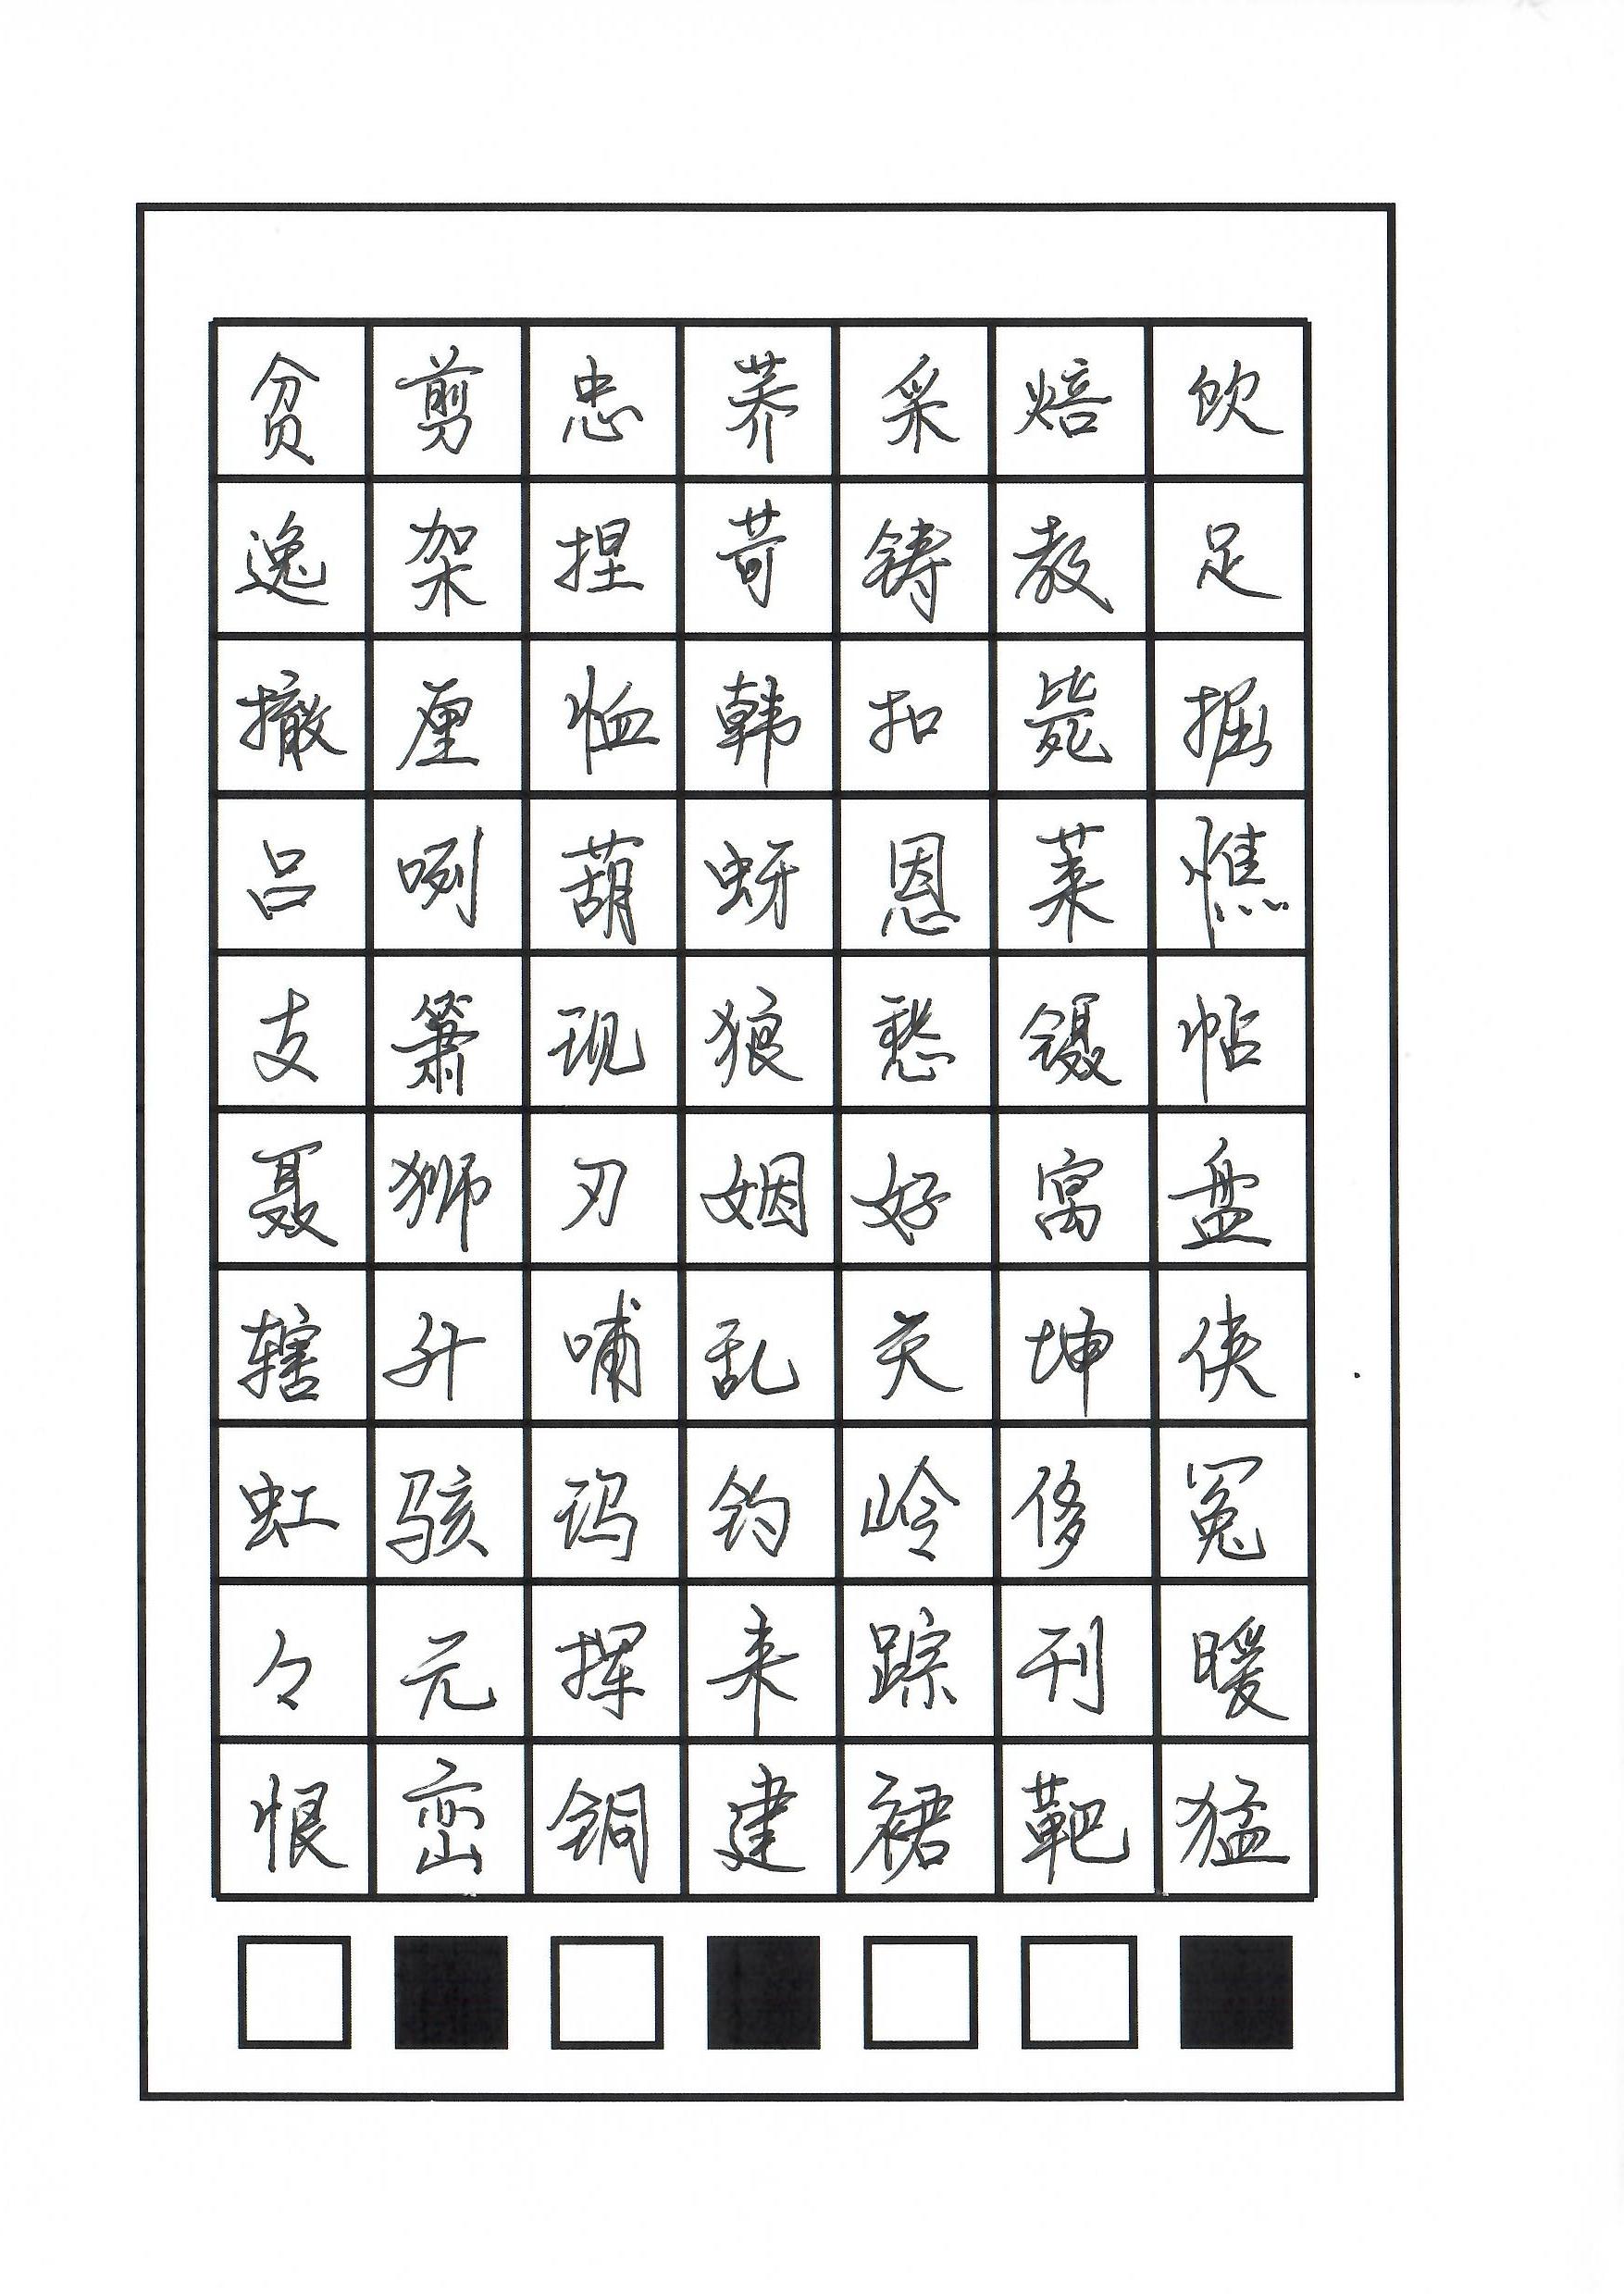 贫剪忠荞采焙饮
逸架捏苛铸敖足
撤厘恤韩扣毙掘
吕咧葫蚜恩莱憔
支箫现狼愁镊帖
聂狮刃姻好寓盘
辖升哺乱关坤侠
虹骇玛钓岭侈冤
々元挥来踪刊暖
恨峦铜建裙靶猛